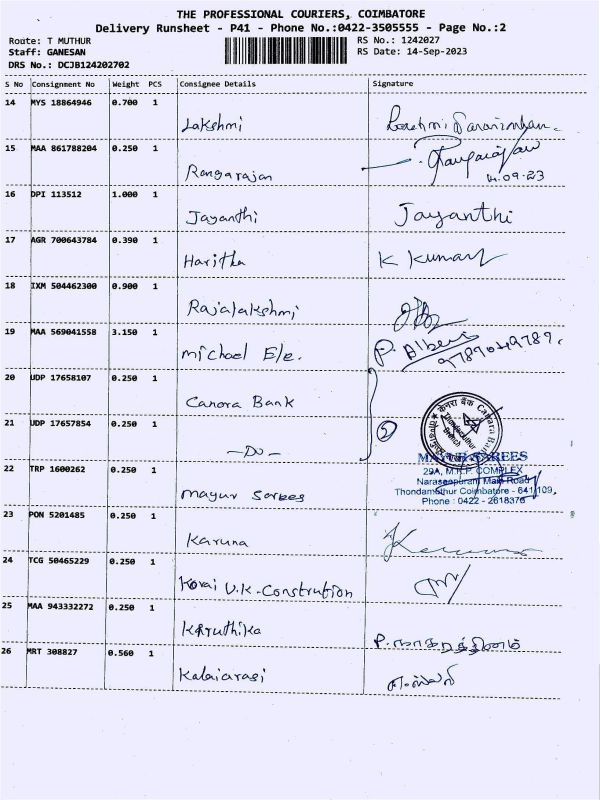 THE PROFESSIONAL COURIERS, COIMBATORE
Delivery Runsheet - P41 - Phone No.:0422-3505555 - Page No.:2
Route: T MUTHUR
RS No.: 1242027
Staff: GANESAN
RS Date: 14-Sep-2023
DRS No.: DCJB124202702
S No Consignment No Weight PCS Consignee Details Signature
14 MYS 18864946 0.700 1
Lakshmi
15 MAA 861788204 0.250 1
Rangarajan
14.09.23
16 DPI 113512 1.000 1
Jayanthi Jayanthi
17 AGR 700643784 0.390 1
Haritha K Kumar
18 IXM 504462300 0.900 1
Rajalakshmi
19 MAA 569041558 3.150 1
Michael Ele. P. Albert
9789049789.
20 UDP 17658107 0.250 1
Canora Bank
21 UDP 17657854 0.250 1
-Do-
22 TRP 1600262 0.250 1
Mayur Sarees
केनरा बैंक Canara Bank
Thondamuthur Branch
MAYUR SAREES
29A, M.R.P. COMPLEX
Naraseepuram Main Road
Thondamuthur Coimbatore - 641 109.
Phone : 0422 - 2618376
23 PON 5201485 0.250 1
Karuna
24 TCG 50465229 0.250 1
Kovai V.K-Constrution
25 MAA 943332272 0.250 1
Karuthika
26 MRT 308827 0.560 1
Kalaiarasi